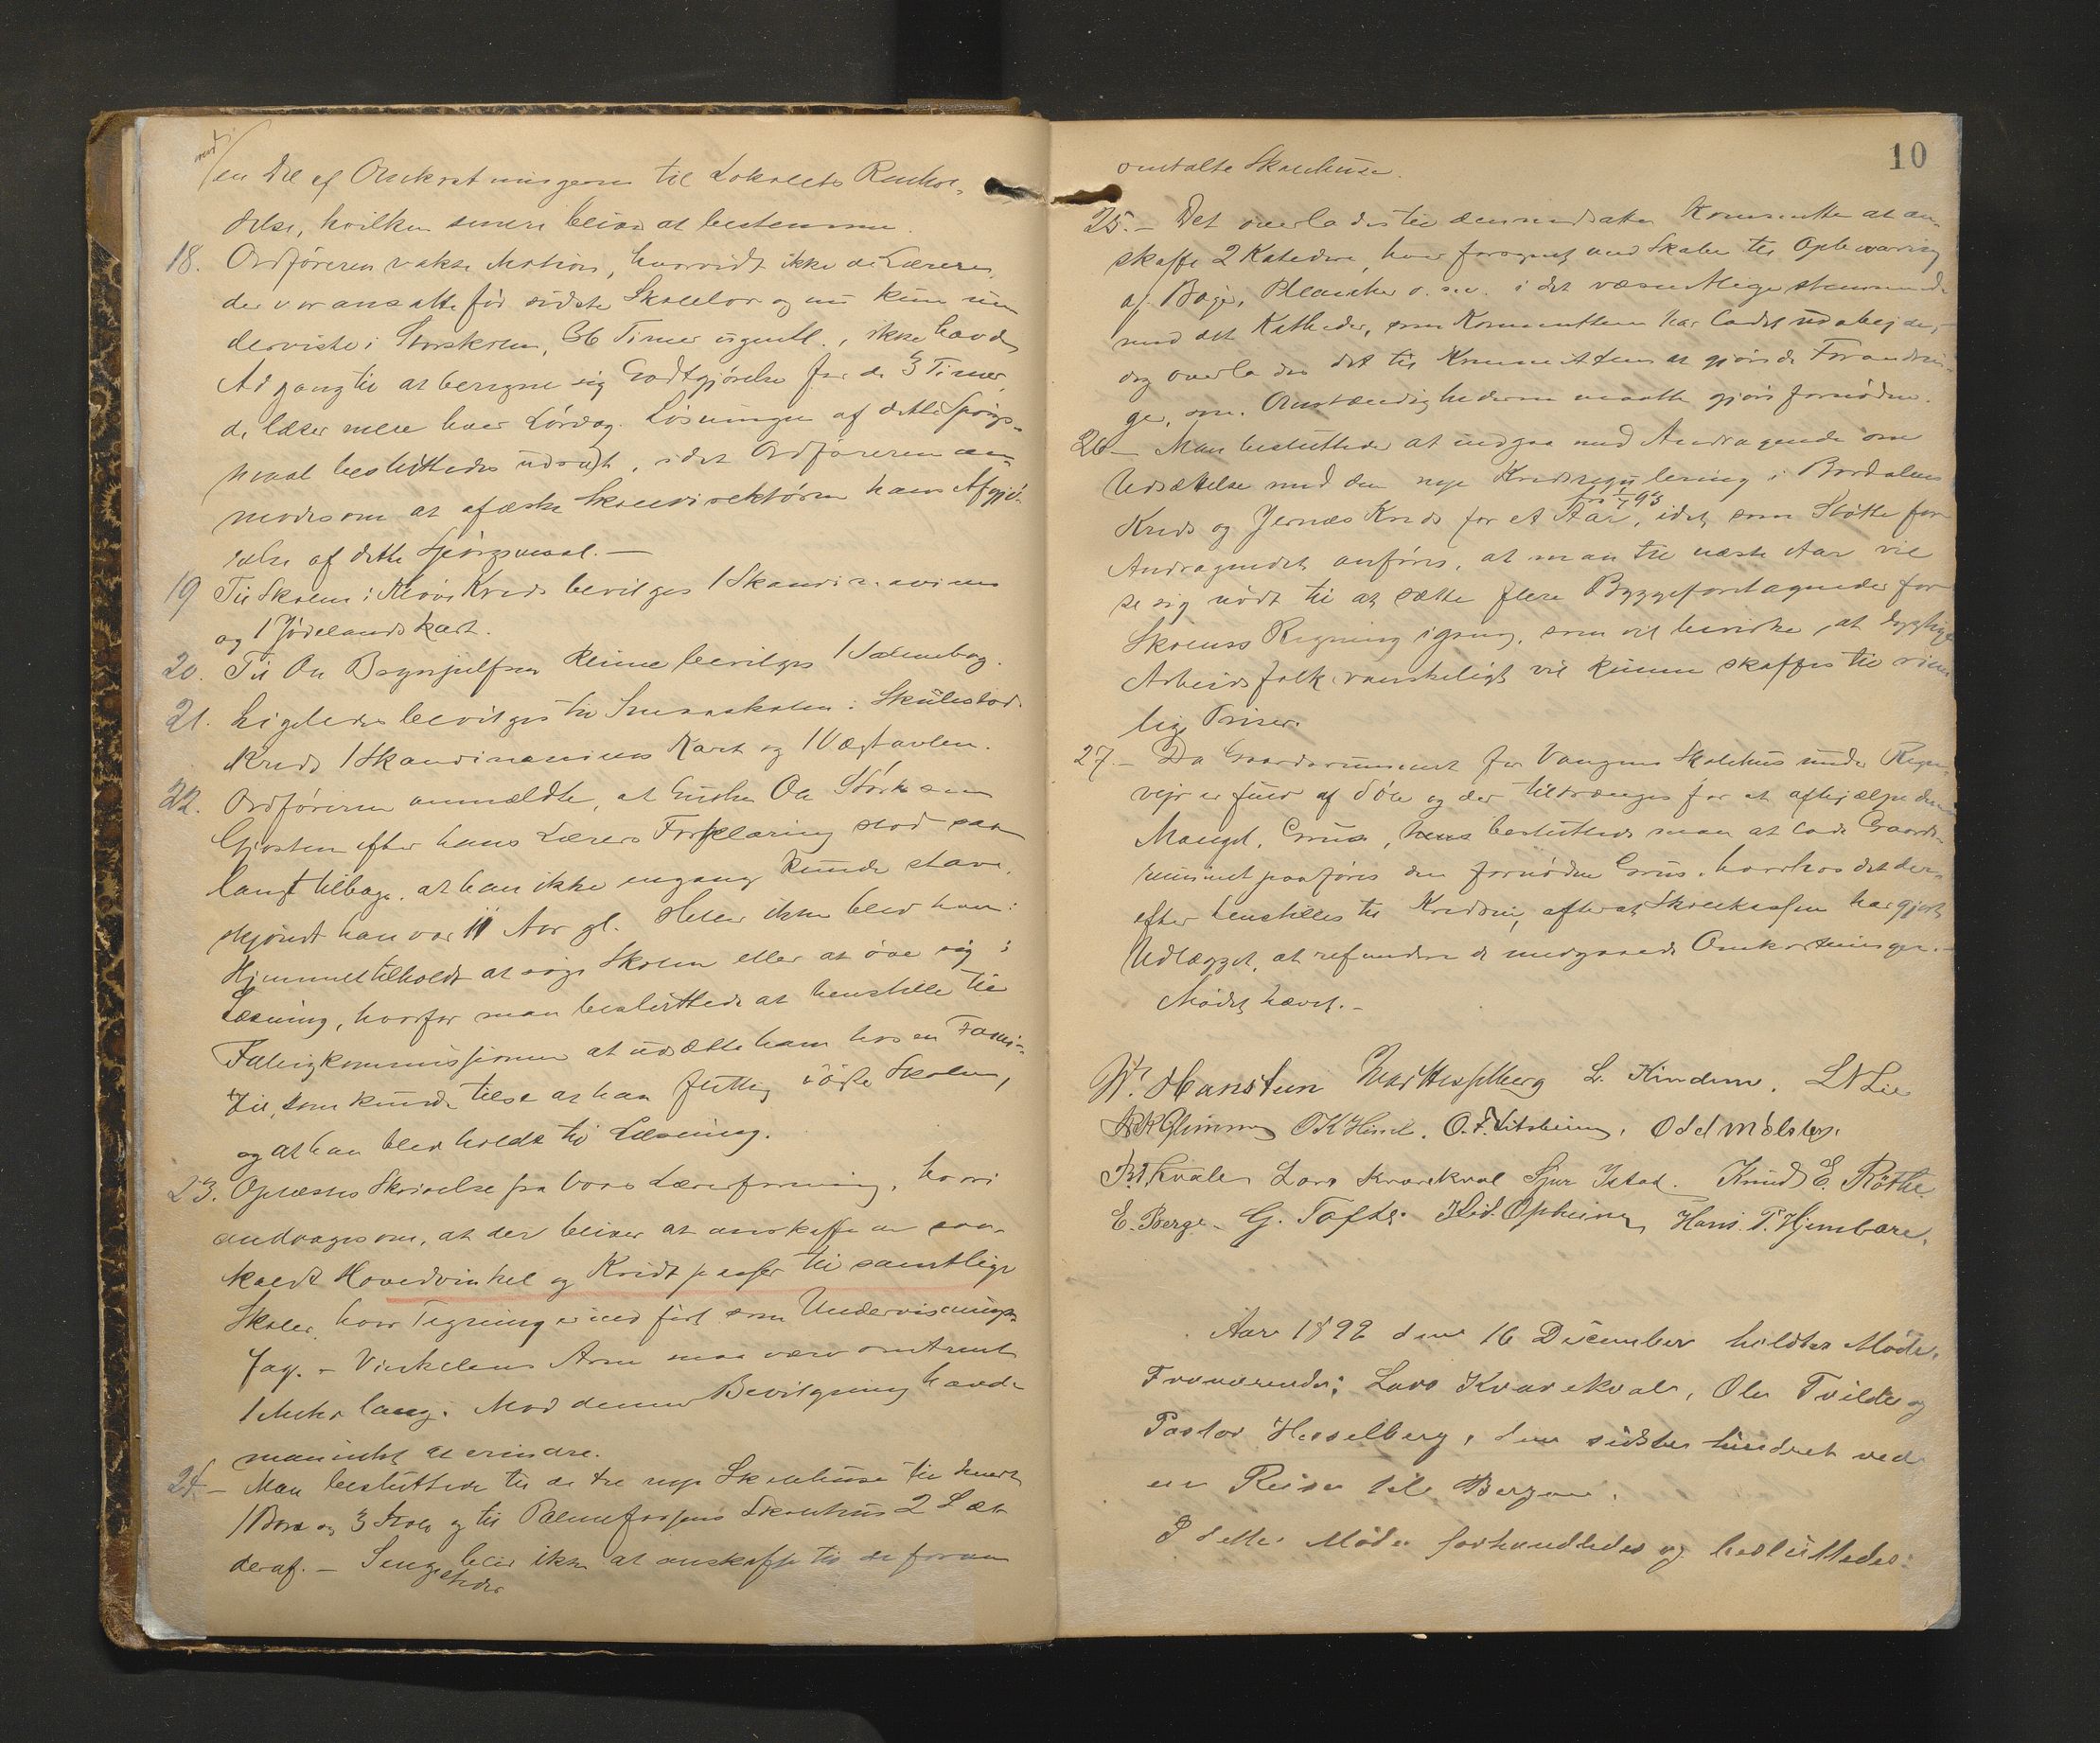 med
en Del af Omkostningerne til Lokalets Renhol-
delse, hvilken senere bliver at bestemme.
18. Ordføreren vakte Motion, hvorvidt ikke de Lærere,
der var ansatte før sidste Skolelov og nu kun un
derviste i Storskolen, 36 Timer ugentl., ikke havde
Adgang til at beregne sig Godtgjørelse for de 3 Timer,
de læser mere hver Lørdag. Løsningen af dette Spørgs-
maal besluttedes udsat, idet Ordføreren an-
modes om at afæske Skoledirektøren hans Afgjø-
relse af dette Spørgsmaal. —
19 Til Skolen i Kløve Kreds bevilges 1 Skandinaviens
og 1 Jødelands Kart.
20. Til Ole Brynjulfsen Reime bevilges 1 Salmebog.
21. Ligeledes bevilges til Smaaskolen i Skulestad
Kreds 1 Skandinaviens Kart og 1 Vægtavlen.
22. Ordføreren anmeldte, at Gutten Ole Størksen
Gjosten efter hans Lærers Forklaring stod saa
langt tilbage, at han ikke engang kunde stave,
skjøndt han var 11 Aar gl. Heller ikke blev han i
Hjemmet tilholdt at søge Skolen eller at øve sig i
Læsning, hvorfor man besluttede at henstille til
Fattigkommissionen at udsætte ham hos en Fami-
lie, som kunde tilse at han flittig søgte Skolen,
og at han blev holdt til Læsning.
23. Oplæstes Skrivelse fra Voss Lærerforening, hvori
andrages om, at der bliver at anskaffe en saa-
kaldt Hovedvinkel og Kridtpasser til samtlige
Skoler, hvor Tegning er indført som Undervisnings-
fag. – Vinkelens Arm maa være omtrent
1 Meter lang. Mod denne Bevilgning havde
man intet at erindre.
24. – Man besluttede til de tre nye Skolehuse til hvert
1 Bord og 3 Stole og til Palmafossens Skolehus 2 Sæt
deraf. – Senge bliver ikke at anskaffe til de foran
steder
10
omtalte Skolehuse.
25. – Det overlades til den nedsatte Komite at an-
skaffe 2 Kathedre, hver forsynet med Skabe til Opbevaring
af Bøger, Plancher o.s.v. i det væsentlige stemmende
med det Katheder, som Kommitteen har ladet udarbejde,
dog overlades det til Kommitteen at gjøre de Forandrin-
ger, som Omstændighederne maatte gjøre fornødne.
26 – Man besluttede at indgaa med Andragende om
Udsættelse med den nye Kredsregulering i Bordalens
Kreds og Jernæs Kreds for et Aar, idet som Støtte for
fra 1/1 93
Andragendet anføres, at man til næste Aar vil
se sig nødt til at sætte flere Byggeforetagender for
Skolens Regning igang, som vil bevirke, at dygtige
Arbeidsfolk vanskeligt vil kunne skaffes til rime
lige Priser.
27. – Da Gaardsrummet for Vangens Skolehus under Regn-
vejr er fuld af Søle og der tiltrænges for at afhjælpe denne
Mangel, Grus, besluttede man at lade Gaards-
rummet paaføres den fornødne Grus, hvorhos det der-
efter henstilles til Kredsen, efterat Skolekassen har gjort
Udlægget, at refundere de medgaaede Omkostninger. –
Mødet hævet. –
W. Hanstein Hesselberg L. Kindem. L N Lie
N K Glimme O K Hirth. O. F. Litsheim, Odd Mølster.
B. Kvale Lars Kvarekval Sjur Istad. Knud E. Røthe.
E. Berge. G. Tofte. K. Opheim, Hans T. Hjembere.
Aar 1892 den 16 December holdtes Møde.
Fraværende: Lars Kvarekval, Ole Tvilde og
Pastor Hesselberg, den sidste hindret ved
en Reise til Bergen.
I dette Møde forhandledes og besluttedes: